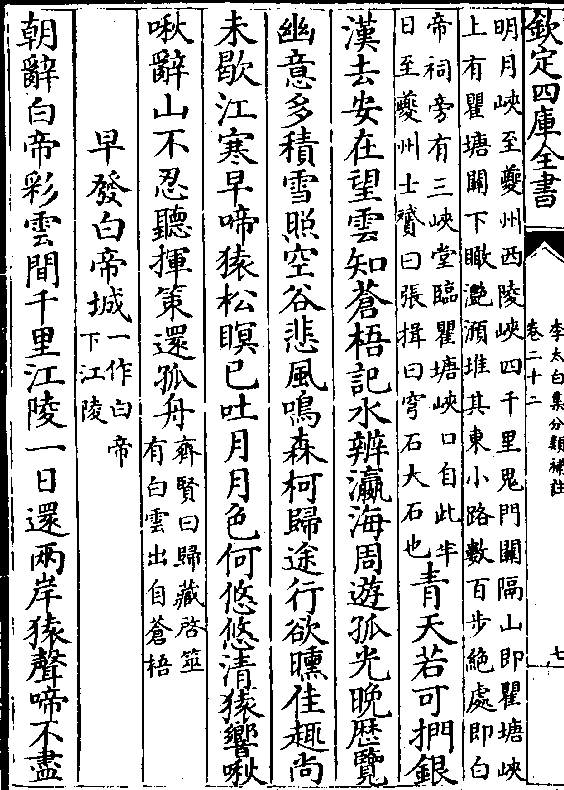 欽定四庫全書
李太白集分類補註
卷二十二
七
明月峽至夔州西陵峽四千里鬼門關隔山即瞿塘峽
上有瞿塘關下瞰灧澦堆其東小路數百步絶處即白
帝祠旁有三峽堂臨瞿塘峽口自此半
日至夔州士贇曰張揖曰穹石大石也
青天若可捫銀
漢去安在望雲知蒼梧記水辨瀛海周遊孤光晚歴覽
幽意多積雪照空谷悲風鳴森柯歸途行欲曛佳趣尚
未歇江寒早啼猿松暝已吐月月色何悠悠清猿響啾
啾辭山不忍聽揮策還孤舟
齊賢曰歸藏啓筮
有白雲出自蒼梧
早發白帝城
一作白帝
下江陵
朝辭白帝彩雲間千里江陵一日還兩岸猿聲啼不盡